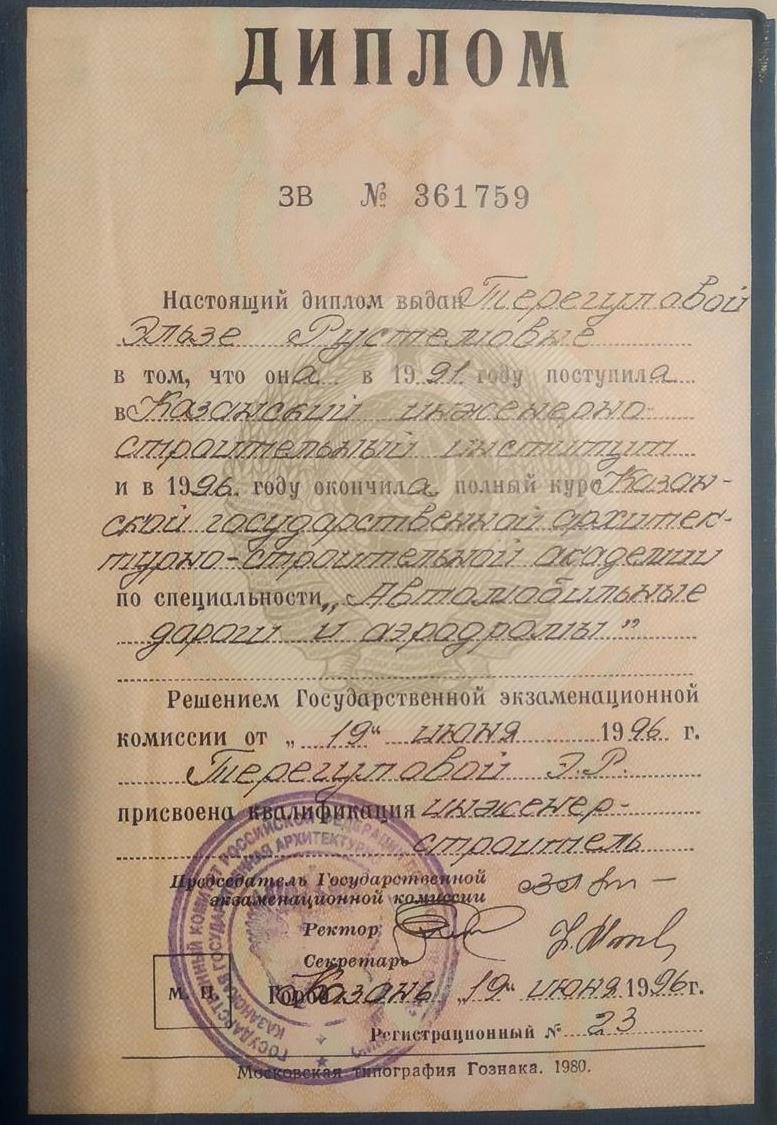 ДИПЛОМ
ЗВ № 361759
Настоящий диплом выдан Терегуловой
Эльзе Рустемовне
в том, что она в 1991 году поступила
в Казанский инженерно-
строительный институт
и в 1996 году окончила полный курс Казан-
ской государственной архитек-
турно-строительной академии
по специальности „Автомобильные
дороги и аэродромы"
Решением Государственной экзаменационной
комиссии от „19" июня 1996 г.
Терегуловой Э.Р.
присвоена квалификация инженер-
строитель
Председатель Государственной
экзаменационной комиссии
Ректор
Секретарь
М. П. Город Казань „19" июня 1996 г.
Регистрационный № 23
Московская типография Гознака. 1980.
ГОСУДАРСТВЕННЫЙ КОМИТЕТ РОССИЙСКОЙ ФЕДЕРАЦИИ
КАЗАНСКАЯ ГОСУДАРСТВЕННАЯ АРХИТЕКТУРНО